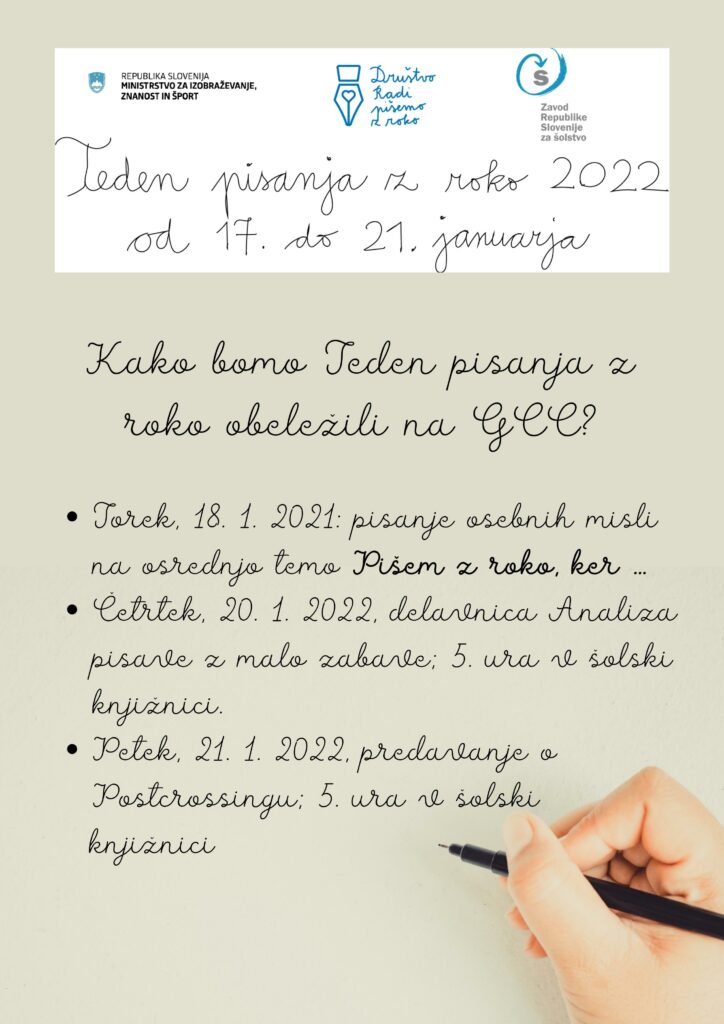 REPUBLIKA SLOVENIJA
MINISTRSTVO ZA IZOBRAŽEVANJE,
ZNANOST IN ŠPORT
Društvo
Radi
pišemo
z roko
Š
Zavod
Republike
Slovenije
za šolstvo
Teden pisanja z roko 2022
od 17. do 21. januarja
Kako bomo Teden pisanja z
roko obeležili na GCC?
• Torek, 18. 1. 2021: pisanje osebnih misli
na osrednjo temo Pišem z roko, ker ...
• Četrtek, 20. 1. 2022, delavnica Analiza
pisave z malo zabave; 5. ura v šolski
knjižnici.
• Petek, 21. 1. 2022, predavanje o
Postcrossingu; 5. ura v šolski
knjižnici